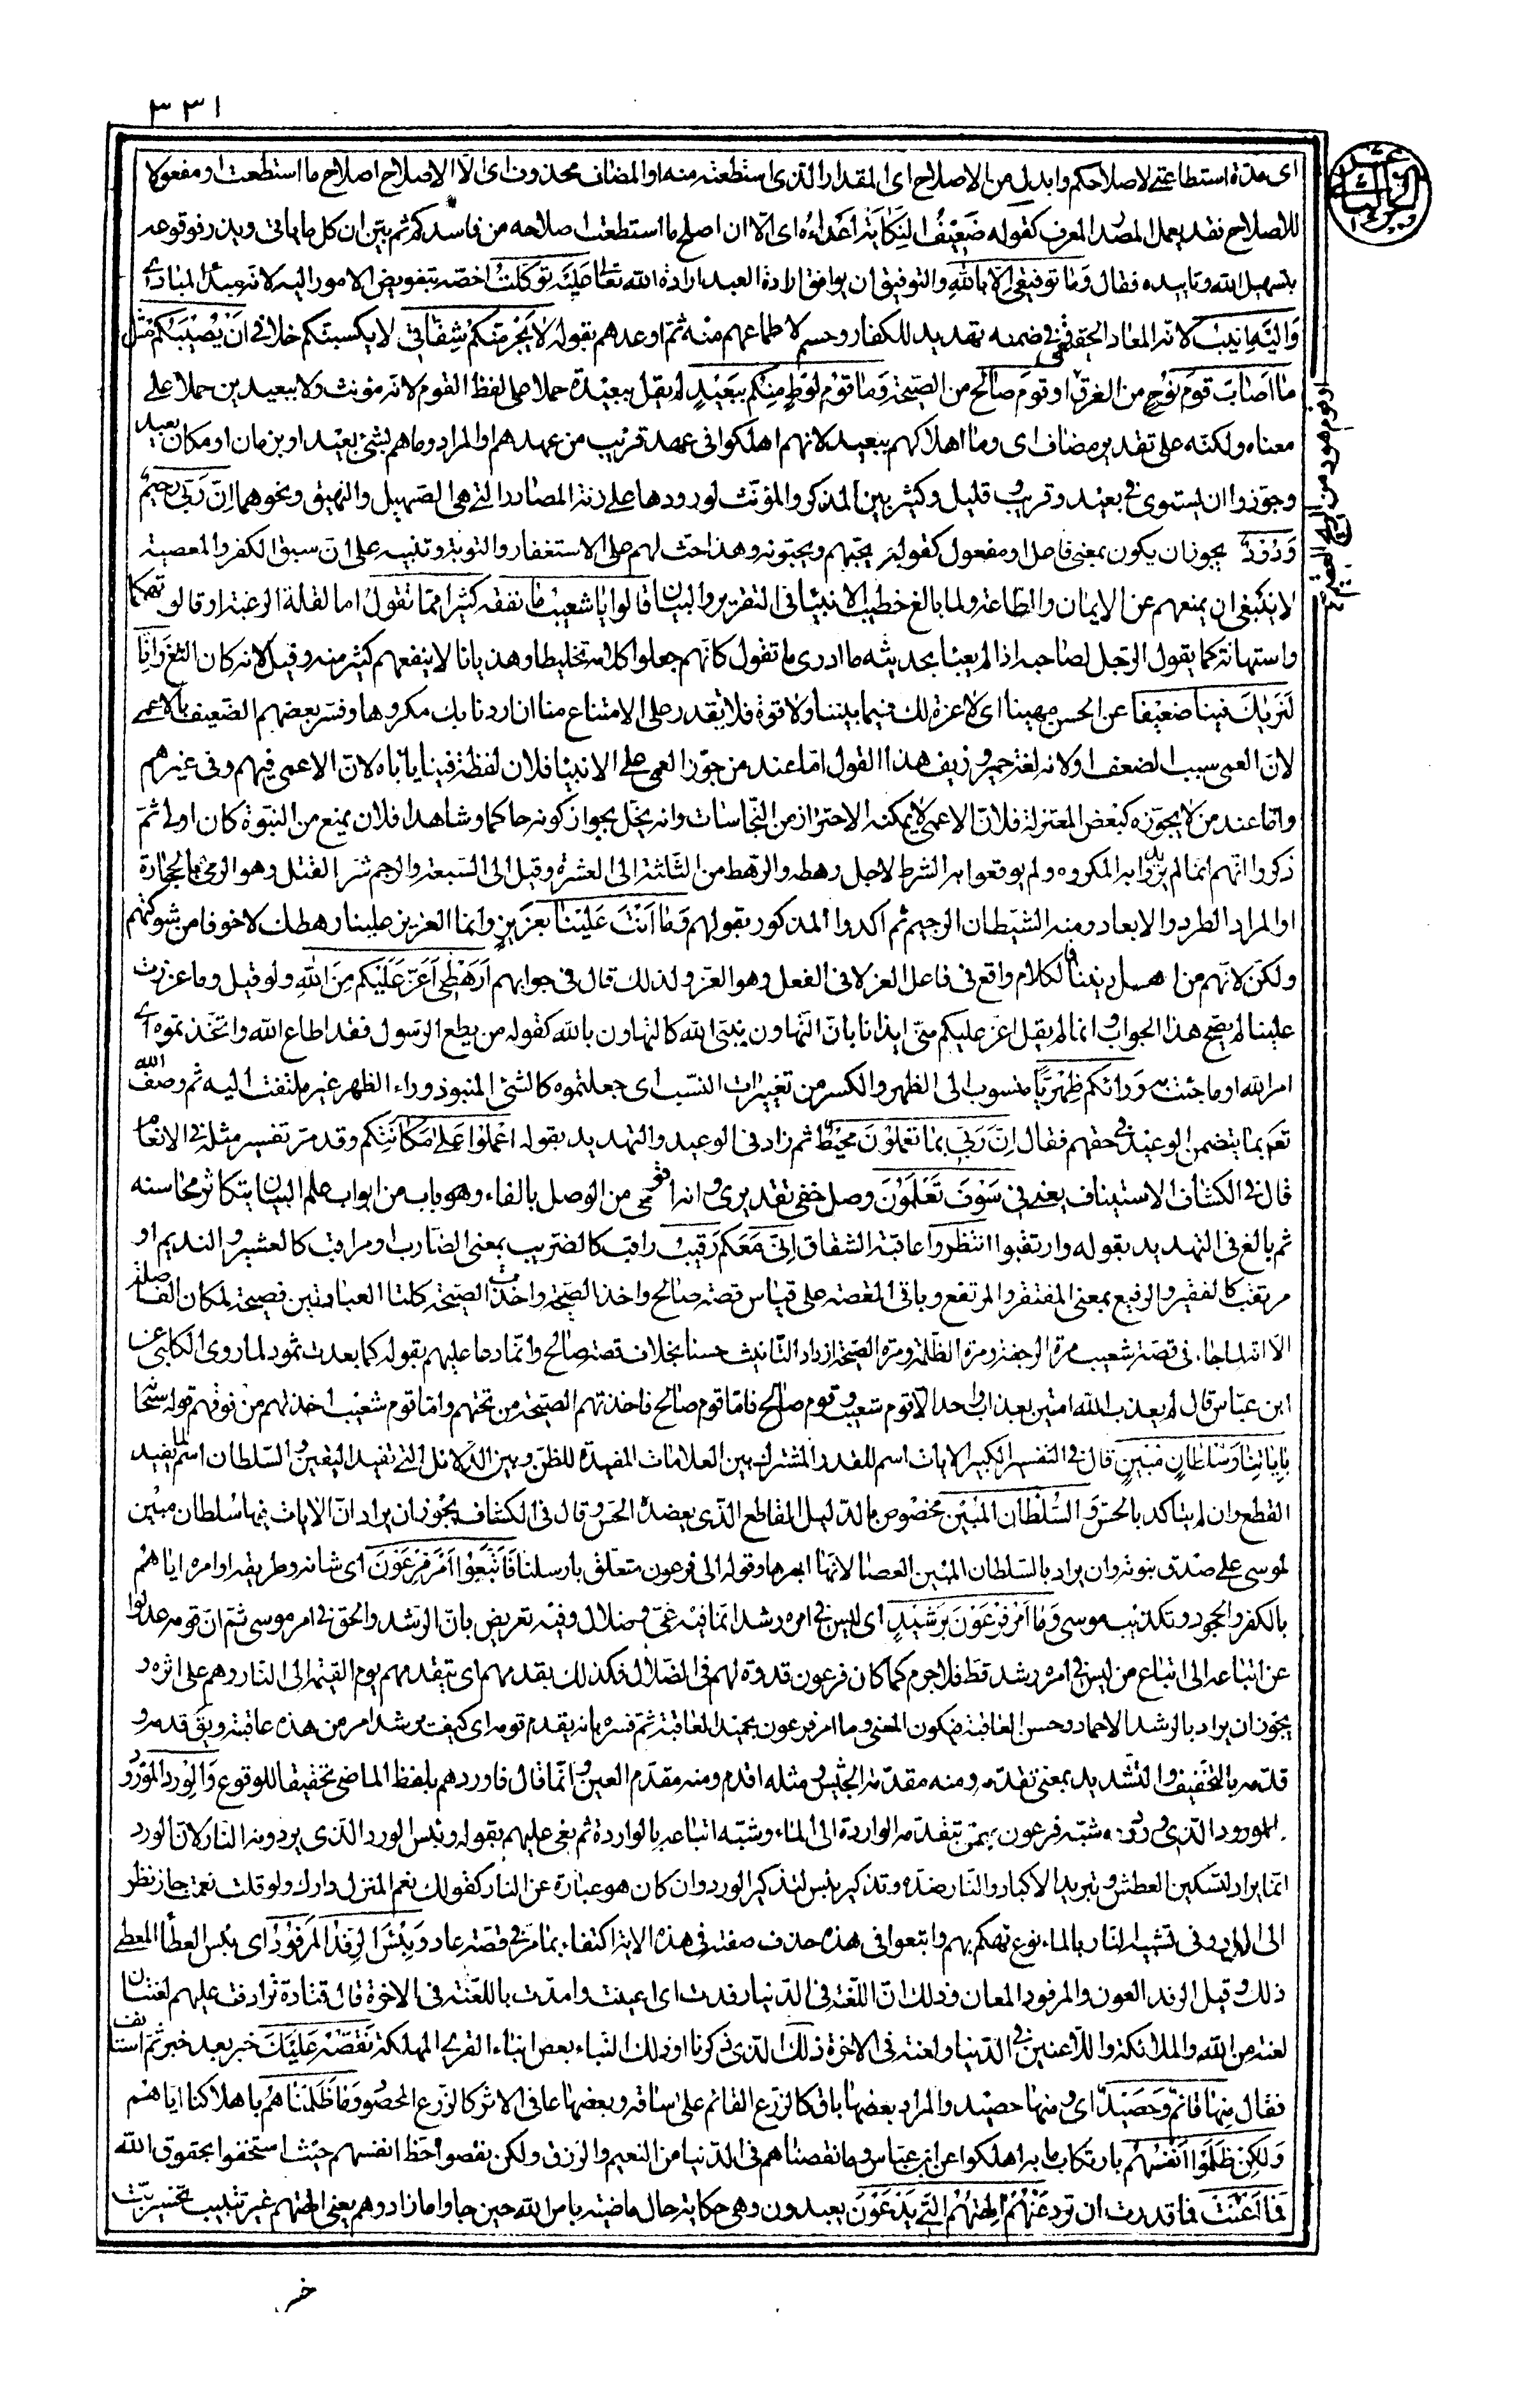 ٣٣١
اى مدة استطاعتى لاصلاحكم وابدل من الاصلاح اى المقدار الذى استطعته منه او المضاف محذوف اى الا الاصلاح اصلاح ما استطعت او مفعولا
للاصلاح فقد يعمل المصدر المعرف كقوله ضَعِيْفُ النِّكَايَةِ اَعْدَاءَهُ اى الا ان اصلح ما استطعت اصلاحه من فاسدكم ثم بين ان كل ما ياتى ويذر فوقوعه
بتسهيل الله وتاييده فقال وَمَا تَوْفِيْقِىْ اِلَّا بِاللهِ والتوفيق ان يوافق ارادة العبد ارادة الله تعالى عَلَيْهِ تَوَكَّلْتُ اخصه بتفويض الامور اليه لانه مبدأ المبادى
وَاِلَيْهِ اُنِيْبُ لانه المعاد الحقيقى وفى ضمنه تهديد للكفار وحسم لاطماعهم منه ثم اوعدهم بقوله لَا يَجْرِمَنَّكُمْ شِقَاقِىْ لا يكسبنكم خلافى اَنْ يُّصِيْبَكُمْ مِثْلُ
مَا اَصَابَ قَوْمَ نُوْحٍ من الغرق اَوْ قَوْمَ صَالِحٍ من الصيحة وَمَا قَوْمُ لُوْطٍ مِنْكُمْ بِبَعِيْدٍ لم يقل ببعيدة حملا على لفظ القوم لانه مؤنث ولا ببعيدين حملا على
او قوم هود من الريح العقيم
معناه ولكنه على تقدير مضاف اى وما اهلاكهم ببعيد لانهم اهلكوا فى عهد قريب من عهدهم او المراد وما هم بشئ بعيد او بزمان او مكان بعيد
وجوزوا ان يستوى فى بعيد وقريب وقليل وكثير بين المذكر والمؤنث لورودها على زنة المصادر التى هى الصهيل والنهيق ونحوهما اِنَّ رَبِّىْ رَحِيْمٌ
وَّدُوْدٌ يجوز ان يكون بمعنى فاعل او مفعول كقوله يحبهم ويحبونه وهذا حث لهم على الاستغفار والتوبة وتنبيه على ان سبق الكفر والمعصية
لا ينبغى ان يمنعهم عن الايمان والطاعة ولما بالغ خطيب الانبياء فى التقرير والبيان قَالُوْا يَا شُعَيْبُ مَا نَفْقَهُ كَثِيْرًا مِمَّا تَقُوْلُ اما لقلة الرغبة او قالوا تهكما
واستهانة كما يقول الرجل لصاحبه اذا لم يعبأ بحديثه ما ادرى ما تقول كانهم جعلوا كلامه تخليطا وهذيانا لا ينفعهم كثير منه وقيل لانه كان الثغ وَاِنَّا
لَنَرٰيكَ فِيْنَا ضَعِيْفًا عن الحسن مهينا اى لا عزة لك فيما بيننا ولا قوة فلا يقدر على الامتناع منا ان اردنا بك مكروها وفسر بعضهم الضعيف بالاعمى
لان العمى سبب الضعف او لانه لغة حمير وزيف هذا القول اما عند من جوز العمى على الانبياء فلان لفظة فينا ياباه لان الاعمى فيهم وفى غيرهم
واما عند من لا يجوزه كبعض المعتزلة فلان الاعمى لا يمكنه الاحتراز من النجاسات وانه يخل بجواز كونه حاكما وشاهدا فلان يمنع من النبوة كان اولى ثم
ذكروا انهم انما لم يريدوا به المكروه ولم يوقعوا به الشر لاجل رهطه والرهط من الثلثة الى العشرة وقيل الى السبعة والرجم شر القتل وهو الرمى بالحجارة
او المراد الطرد والابعاد ومنه الشيطان الرجيم ثم اكدوا المذكور بقولهم وَمَا اَنْتَ عَلَيْنَا بِعَزِيْزٍ وانما العزيز علينا رهطك لا خوفا من شوكتهم
ولكن لانهم من اهل ديننا فالكلام واقع فى فاعل العز لا فى الفعل وهو العز ولذلك قال فى جوابهم اَرَهْطِىْ اَعَزُّ عَلَيْكُمْ مِنَ اللهِ ولو قيل وما عززت
علينا لم يصح هذا الجواب وانما لم يقل اعز عليكم منى ايذانا بان التهاون بنبى الله كالتهاون بالله كقوله من يطع الرسول فقد اطاع الله واتخذتموه اى
امر الله او ما جئت به وَرَائَكُمْ ظِهْرِيًّا منسوب الى الظهر والكسر من تغييرات النسب اى جعلتموه كالشئ المنبوذ وراء الظهر غير ملتفت اليه ثم وصف الله
تعالى بما يتضمن الوعيد فى حقهم فقال اِنَّ رَبِّىْ بِمَا تَعْمَلُوْنَ مُحِيْطٌ ثم زاد فى الوعيد والتهديد بقوله اعْمَلُوْا عَلٰى مَكَانَتِكُمْ وقد مر تفسير مثله فى الانعام
قال فى الكشاف الاستيناف يعنى فى سَوْفَ تَعْلَمُوْنَ وصل خفى تقديرى وانه اقوى من الوصل بالفاء وهو باب من ابواب علم البيان يتكاثر محاسنه
ثم بالغ فى التهديد بقوله وارتقبوا انتظروا عاقبة الشقاق اِنِّىْ مَعَكُمْ رَقِيْبٌ راقب كالضريب بمعنى الضارب او مراقب كالعشير والنديم او
مرتقب كالفقير والرفيع بمعنى المفتقر والمرتفع وباقى القصة على قياس قصة صالح واخذ الصيحة واخذت الصيحة كلتا العبارتين فصيحة لمكان الفاصلة
الا انه لما جاء فى قصة شعيب مرة الرجفة ومرة الظلة ومرة الصيحة ازداد التانيث حسنا بخلاف قصة صالح وانما دعا عليهم بقوله كما بعدت ثمود لما روى الكلبى عن
ابن عباس قال لم يعذب الله امتين بعذاب واحد الا قوم شعيب وقوم صالح فاما قوم صالح فاخذتهم الصيحة من تحتهم واما قوم شعيب اخذتهم من فوقهم قوله سبحانه
بِاٰيَاتِنَا وَسُلْطَانٍ مُبِيْنٍ قال فى التفسير الكبير الايات اسم للقدر المشترك بين العلامات المفيدة للظن وبين الدلائل التى تفيد اليقين والسلطان اسم لما يفيد
القطع وان لم يتاكد بالحس والسلطان المبين مخصوص بالدليل القاطع الذى يعضده الحس وقال فى الكشاف يجوز ان يراد ان الايات فيها سلطان مبين
لموسى على صدق نبوته وان يراد بالسلطان المبين العصا لانها ابهرها وقوله الى فرعون متعلق بارسلنا فَاتَّبَعُوْا اَمْرَ فِرْعَوْنَ اى شانه وطريقه او امره اياهم
بالكفر والجحود وتكذيب موسى وَمَا اَمْرُ فِرْعَوْنَ بِرَشِيْدٍ اى ليس فى امره رشد انما فيه غى وضلال وفيه تعريض بان الرشد والحق فى امر موسى ثم ان قومه عدلوا
عن اتباعه الى اتباع من ليس فى امره رشد قط فلا جرم كما كان فرعون قدوة لهم فى الضلال فكذلك يقدمهم اى يتقدمهم يوم القيمة الى النار وهم على اثره و
يجوز ان يراد بالرشد الاحماد وحسن العاقبة فيكون المعنى وما امر فرعون بحميد العاقبة ثم فسره بانه يقدم قومه اى كيف يرشد امر من هذه عاقبته ويق قدمه و
قدمه بالتخفيف والتشديد بمعنى تقدمه ومنه مقدمة الجيش ومثله اقدم ومنه مقدم العين وانما قال فاوردهم بلفظ الماضى تحقيقا للوقوع وَالْوِرْدُ الْمَوْرُوْدُ
المورود الذى وردوه شبه فرعون بمن يتقدم الواردة الى الماء وشبه اتباعه بالواردة ثم نعى عليهم بقوله وبئس الورد الذى يردونه النار لان الورد
انما يراد لتسكين العطش وتبريد الاكباد والنار ضده وتذكير بئس لتذكير الورد وان كان هو عبارة عن النار كقولك نعم المنزل دارك ولو قلت نعمت جاز نظرا
الى الدار وفى تشبيه النار بالماء نوع تهكم بهم واتبعوا فى هذه حذف صفته فى هذه الاية اكتفاء بما مر فى قصة عاد وَبِئْسَ الرِّفْدُ الْمَرْفُوْدُ اى بئس العطاء المعطى
ذلك وقيل الرفد العون والمرفود المعان وذلك ان اللعنة فى الدنيا رفدت اى اعينت وامدت باللعنة فى الاخرة قال قتادة ترادفت عليهم لعنتان
لعنة من الله والملائكة واللاعنين فى الدنيا ولعنة فى الاخرة ذلك الذى ذكرنا او ذلك النباء بعض انباء القرى المهلكة نَقُصُّهُ عَلَيْكَ خبر بعد خبر ثم استانف
فقال مِنْهَا قَائِمٌ وَّحَصِيْدٌ اى ومنها حصيد والمراد بعضها باق كالزرع القائم على ساقه وبعضها عافى الاثر كالزرع المحصود وَمَا ظَلَمْنَاهُمْ باهلاكنا اياهم
وَلٰكِنْ ظَلَمُوْا اَنْفُسَهُمْ بارتكاب ما به اهلكوا عن ابن عباس وما نقصناهم فى الدنيا من النعيم والرزق ولكن نقصوا حظ انفسهم حيث استخفوا بحقوق الله
فَمَا اَغْنَتْ فما قدرت ان ترد عَنْهُمْ اٰلِهَتُهُمُ الَّتِىْ يَدْعُوْنَ يعبدون وهى حكاية حال ماضية باس الله حين جاء وما زادوهم يعنى الهتهم غير تتبيب تخسير تب
خسر